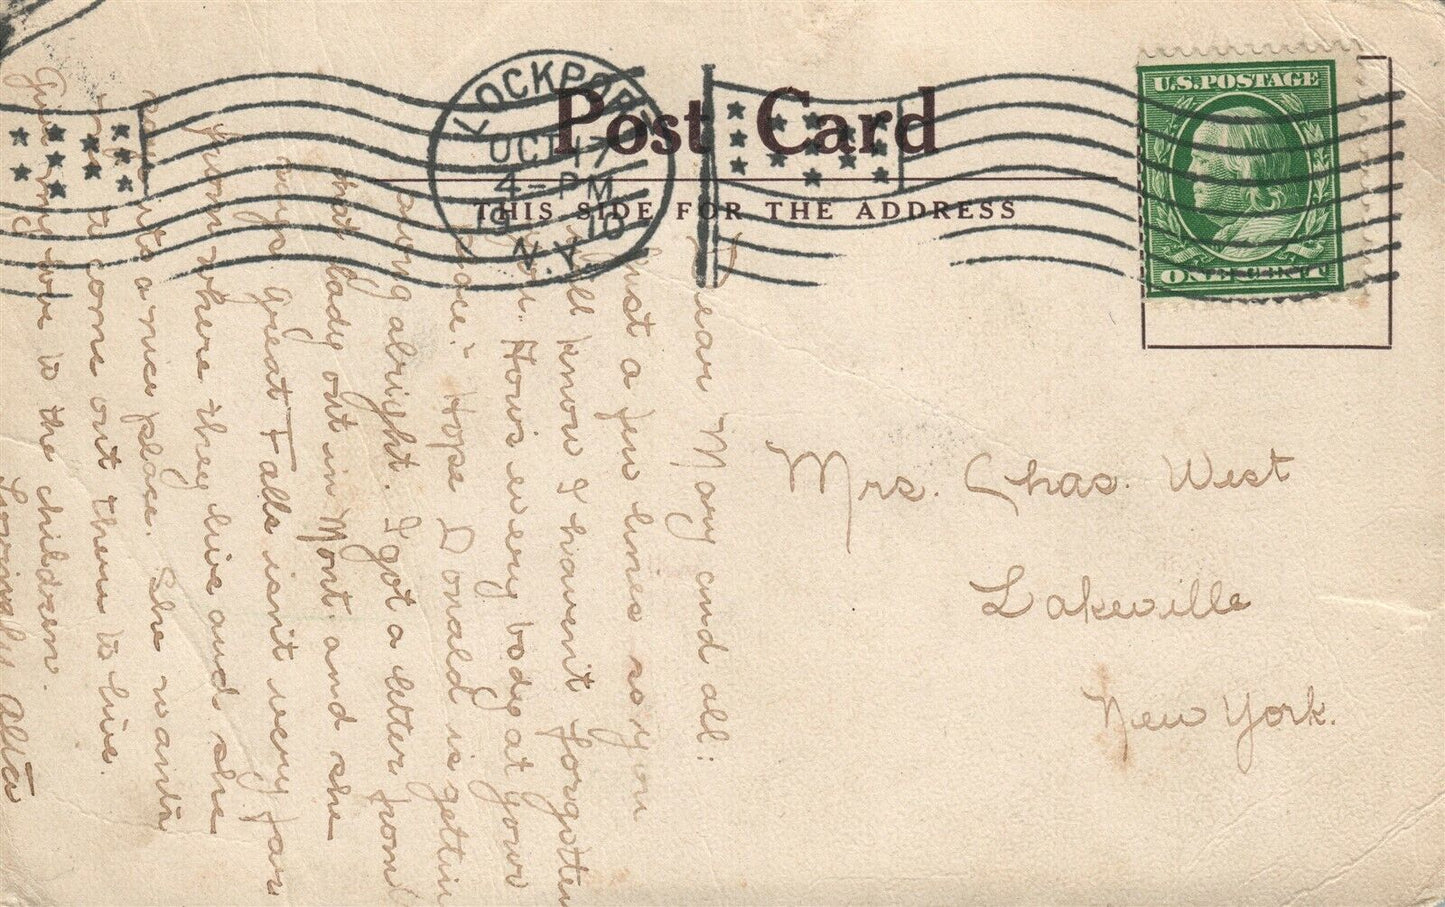 LOCKPORT
OCT 17
4 - PM
1910
N.Y.
Post Card
THIS SIDE FOR THE ADDRESS
U.S. POSTAGE
ONE CENT
Mrs. Chas. West
Lakeville
New York.
Dear Mary and all:
Just a few lines so you
will know I haven't forgotten
you. How's every body at your
place? Hope Donald is gettin
along alright. I got a letter from
that lady out in Mont. and she
says Great Falls isn't very far
from where they live and she
says its a nice place. She wants
to come out there to live.
Give my love to the children.
Lovingly Alta